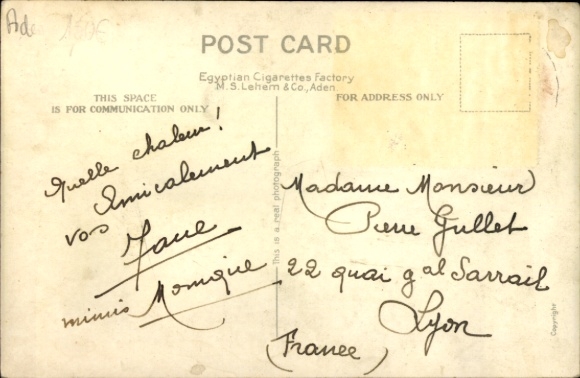 Ade
POST CARD
Egyptian Cigarettes Factory
M.S. Lehem & Co., Aden
THIS SPACE
IS FOR COMMUNICATION ONLY
FOR ADDRESS ONLY
Quelle chaleur!
Amicalement
vos
Monique
This is a real photograph
Madame Monsieur
Pierre Gullet
22 quai gal Sarrail
Lyon
(France)
Copyright